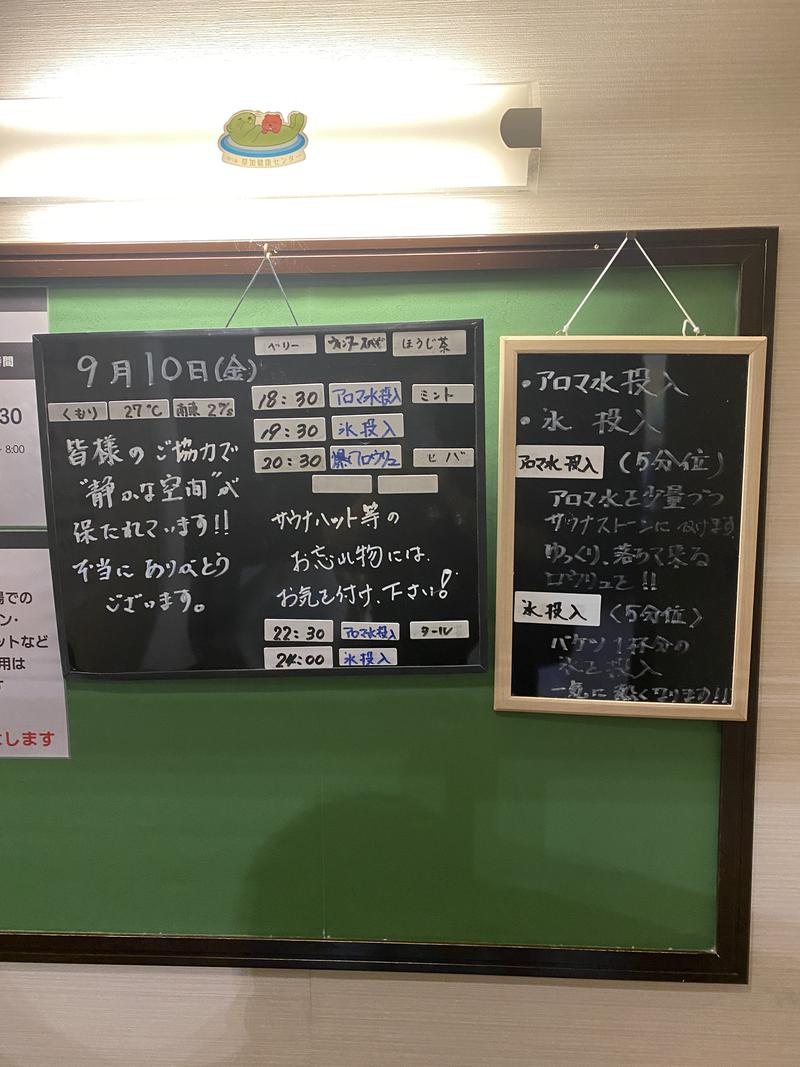 草加健康センター
9月10日(金)
くもり 27℃ 南東 2㍍
皆様のご協力で
"静かな空間"が
保たれています!!
本当にありがとう
ございます。
ベリー ほうじ茶
18:30 アロマ水投入 ミント
19:30 氷投入
20:30 爆アロウリュ ヒバ
サウナハット等の
お忘れ物には、
お気を付け、下さい!
22:30 アロマ水投入 タール
24:00 氷投入
・アロマ水投入
・氷 投入
アロマ水投入 (5分位)
アロマ水を少量づつ
サウナストーンに
ゆっくり、落ちて来る
ロウリュで!!
氷投入 (5分位)
バケツ1杯分の
氷を投入
一気に熱くなります!!
時間
30
8:00
場での
ン・
ットなど
用は
す
します